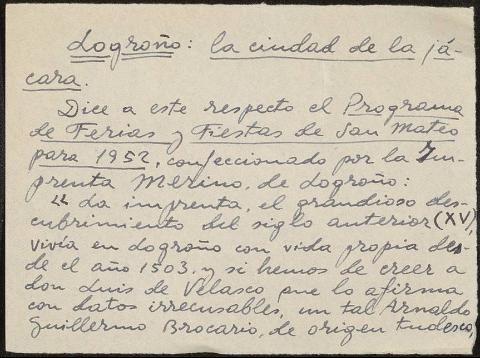 Logroño: la ciudad de la já-
cara.
Dice a este respecto el Programa
de Ferias y Fiestas de San Mateo
para 1952, confeccionado por la Im-
prenta Merino, de Logroño:
"La imprenta, el grandioso des-
cubrimiento del siglo anterior (XV),
vivía en Logroño con vida propia des-
de el año 1503, y si hemos de creer a
don Luis de Velasco que lo afirma
con datos irrecusables, un tal Arnaldo
Guillermo Brocario, de origen tudesco,